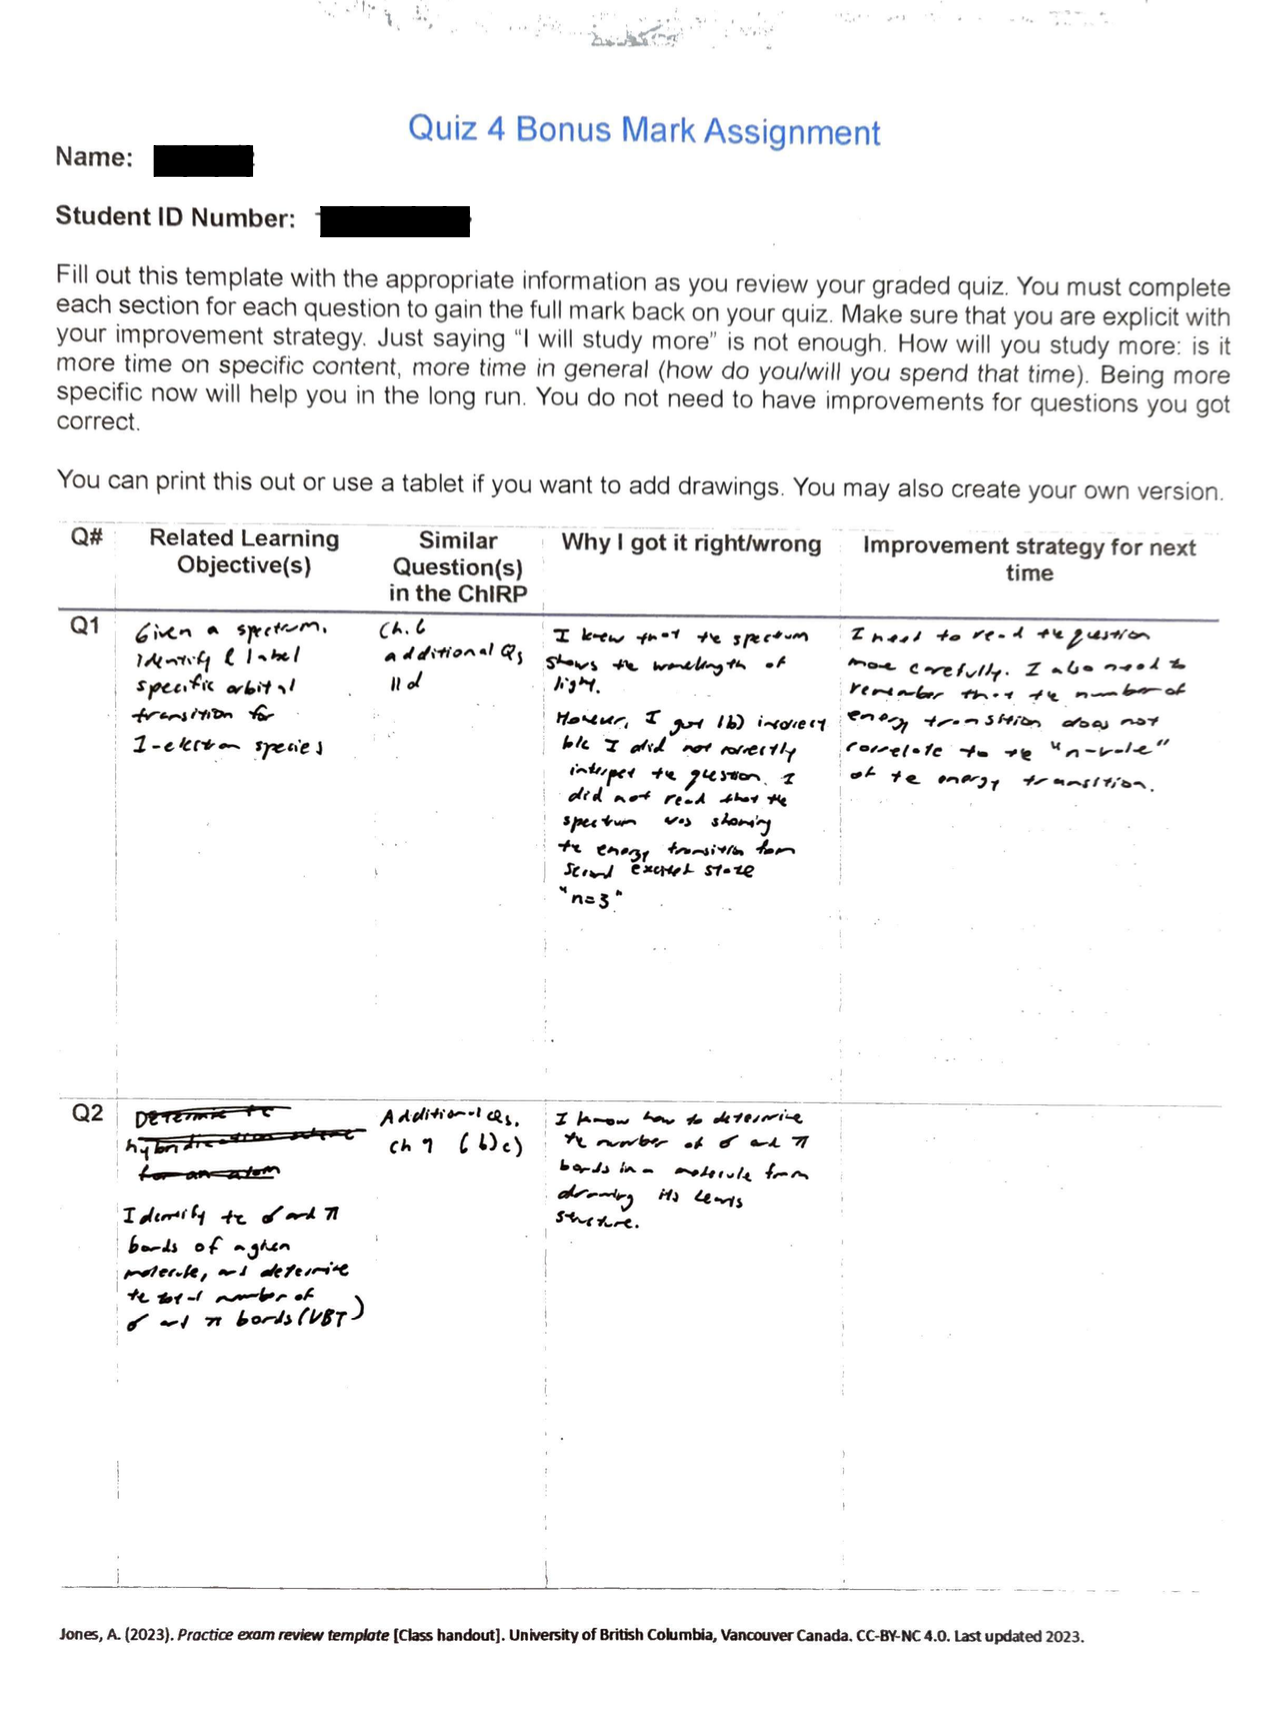 Quiz 4 Bonus Mark Assignment
Name:
Student ID Number:
Fill out this template with the appropriate information as you review your graded quiz. You must complete
each section for each question to gain the full mark back on your quiz. Make sure that you are explicit with
your improvement strategy. Just saying “I will study more” is not enough. How will you study more: is it
more time on specific content, more time in general (how do you/will you spend that time). Being more
specific now will help you in the long run. You do not need to have improvements for questions you got
correct.
You can print this out or use a tablet if you want to add drawings. You may also create your own version.
Q#
Related Learning
Objective(s)
Similar
Question(s)
in the ChIRP
Why I got it right/wrong
Improvement strategy for next
time
Q1
Given a spectrum,
identify & label
specific orbital
transition for
1-electron species
Ch. 6
additional Qs
11 d
I knew that the spectrum
shows the wavelength of
light.
However, I got 1b) incorrect
b/c I did not correctly
interpret the question. I
did not read that the
spectrum was showing
the energy transition from
second excited state
"n=3"
I need to read the question
more carefully. I also need to
remember that the number of
energy transition does not
correlate to the "n-value"
of the energy transition.
Q2
Determine the
hybridization scheme
for an atom
Identify the σ and π
bonds of a given
molecule, and determine
the total number of
σ and π bonds (VBT)
Additional Qs.
Ch 9 (b)c)
I know how to determine
the number of σ and π
bonds in a molecule from
drawing its Lewis
structure.
Jones, A. (2023). Practice exam review template [Class handout]. University of British Columbia, Vancouver Canada. CC-BY-NC 4.0. Last updated 2023.